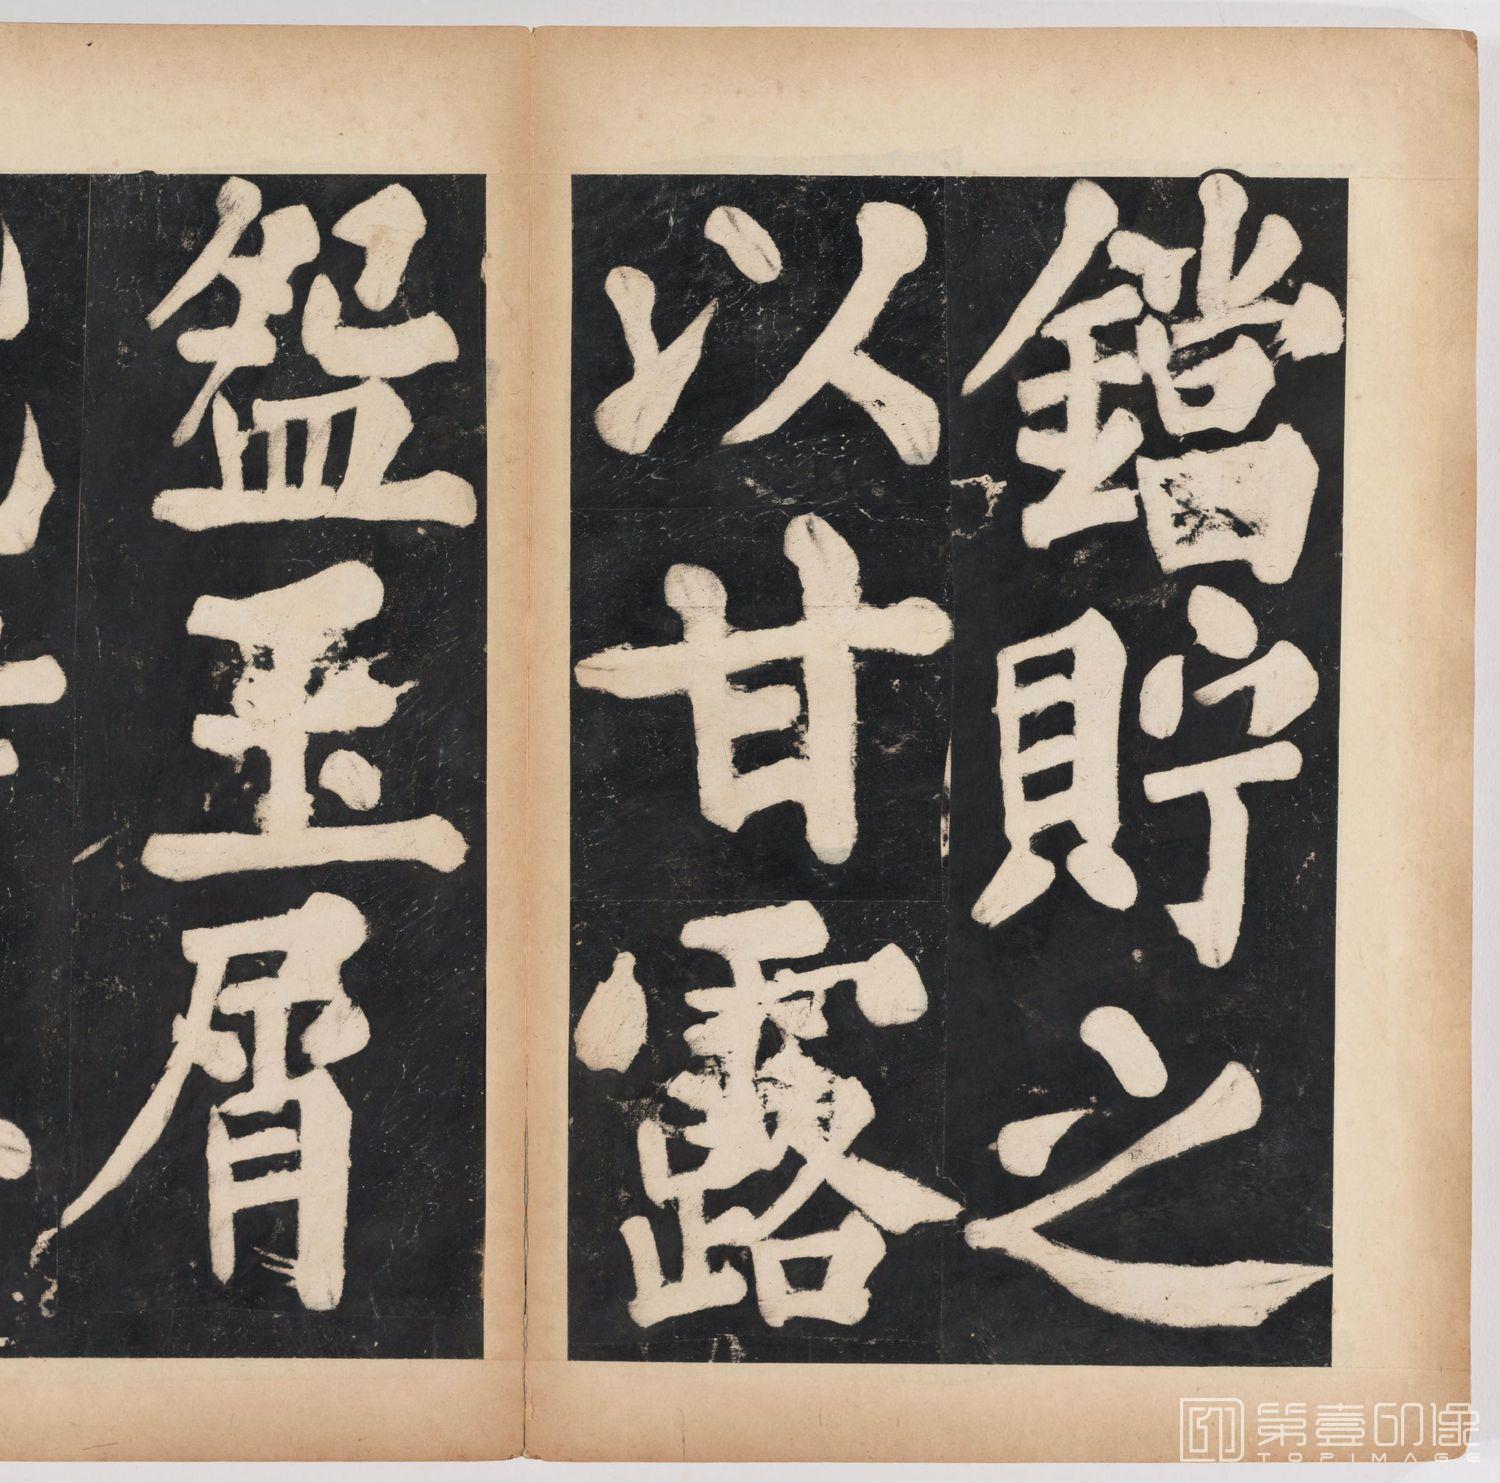 鐺貯之
以甘露
盌玉屑
第壹印像
TOPIMAGE